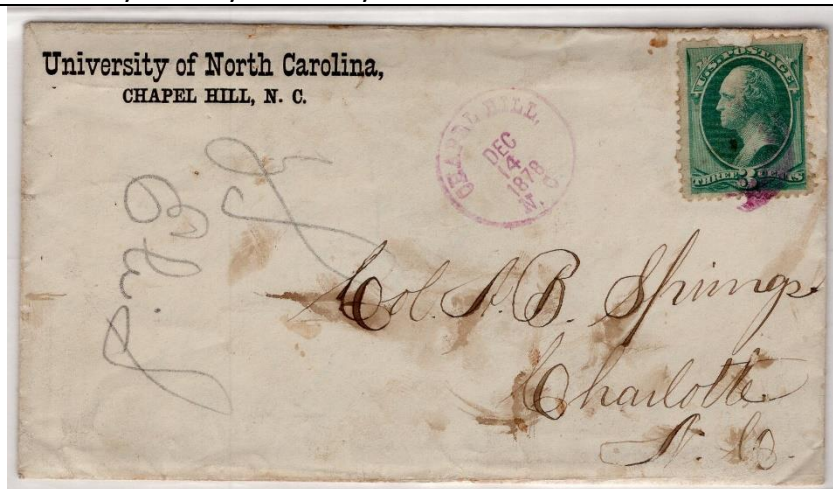 University of North Carolina,
CHAPEL HILL, N. C.
CHAPEL HILL,
DEC
14
1878
N. C.
U.S. POSTAGE
THREE 3 CENTS
Col. A. B. Springs
Charlotte
N. C.